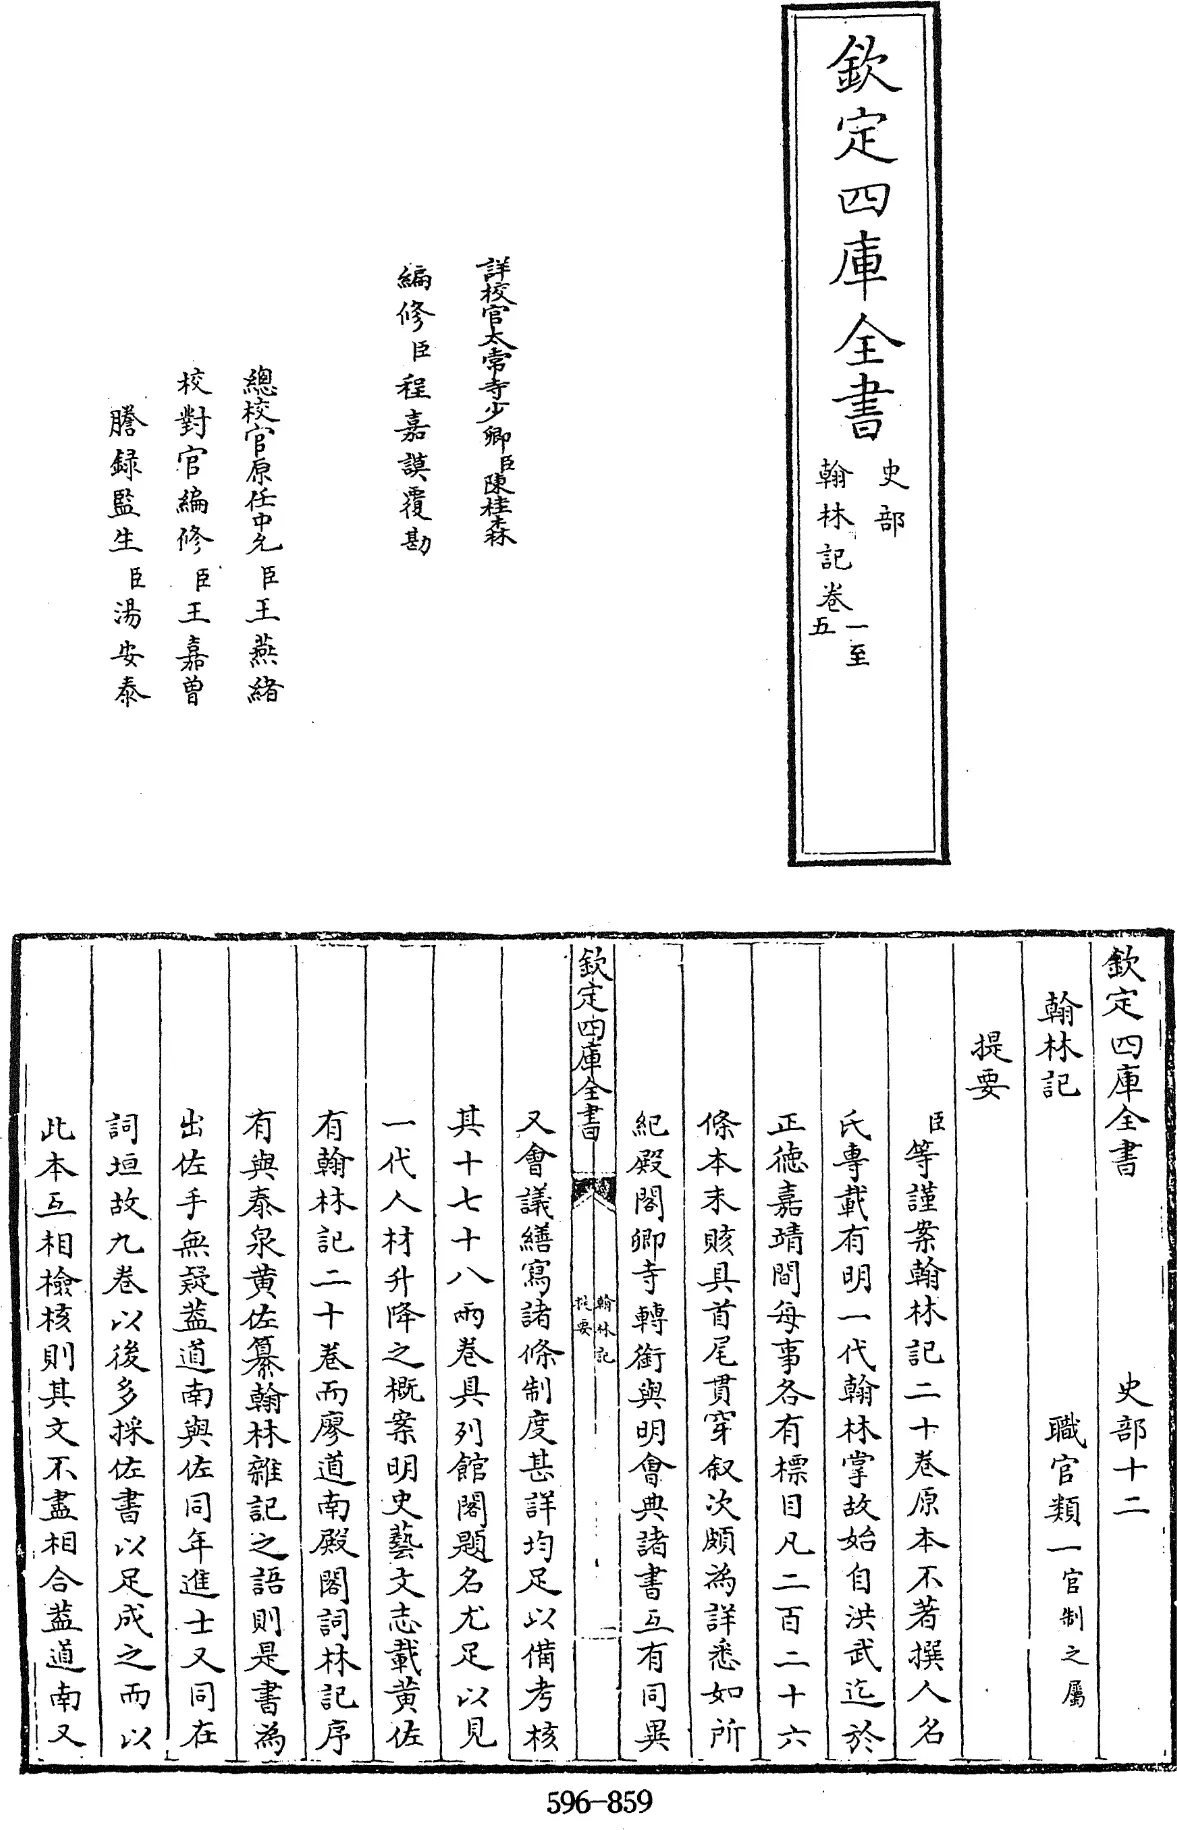 欽定四庫全書
史部
翰林記卷一至五
詳校官太常寺少卿臣陳桂森
編修臣程嘉謨覆勘
總校官原任中允臣王燕緒
校對官編修臣王嘉曾
謄録監生臣湯安泰
欽定四庫全書 史部十二
翰林記 職官類一官制之屬
提要
臣等謹案翰林記二十卷原本不著撰人名
氏專載有明一代翰林掌故始自洪武迄於
正徳嘉靖間每事各有標目凡二百二十六
條本末賅具首尾貫穿叙次頗為詳悉如所
紀殿閣卿寺轉銜與明㑹典諸書互有同異
欽定四庫全書
翰林記
提要
又會議繕寫諸條制度甚詳均足以備考核
其十七十八兩卷具列館閣題名尤足以見
一代人材升降之槪案明史藝文志載黄佐
有翰林記二十卷而廖道南殿閣詞林記序
有與泰泉黄佐纂翰林雜記之語則是書為
出佐手無疑葢道南與佐同年進士又同在
詞垣故九卷以後多採佐書以足成之而以
此本互相檢核則其文不盡相合葢道南又
596-859